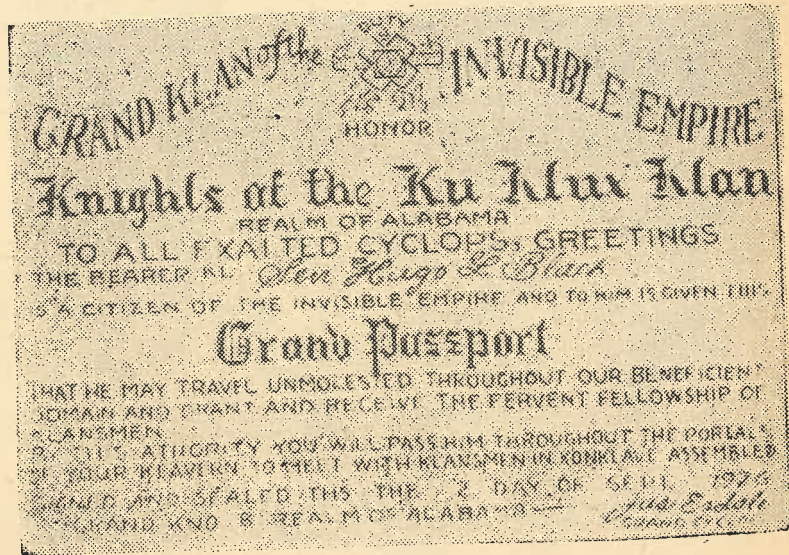 GRAND KLAN of the INVISIBLE EMPIRE
HONOR
Knights of the Ku Klux Klan
REALM OF ALABAMA
TO ALL EXALTED CYCLOPS, GREETINGS
THE BEARER KL. Sen Hugo L Black
IS A CITIZEN OF THE INVISIBLE EMPIRE AND TO HIM IS GIVEN THIS
Grand Passport
THAT HE MAY TRAVEL UNMOLESTED THROUGHOUT OUR BENEFICIENT
DOMAIN AND GRANT AND RECEIVE THE FERVENT FELLOWSHIP OF
KLANSMEN
BY THIS ATHORITY YOU WILL PASS HIM THROUGHOUT THE PORTALS
OF YOUR KLAVERN TO MEET WITH KLANSMEN IN KONKLAVE ASSEMBLED
SIGNED AND SEALED THIS THE 2 DAY OF SEPT
REALM OF ALABAMA
GRAND